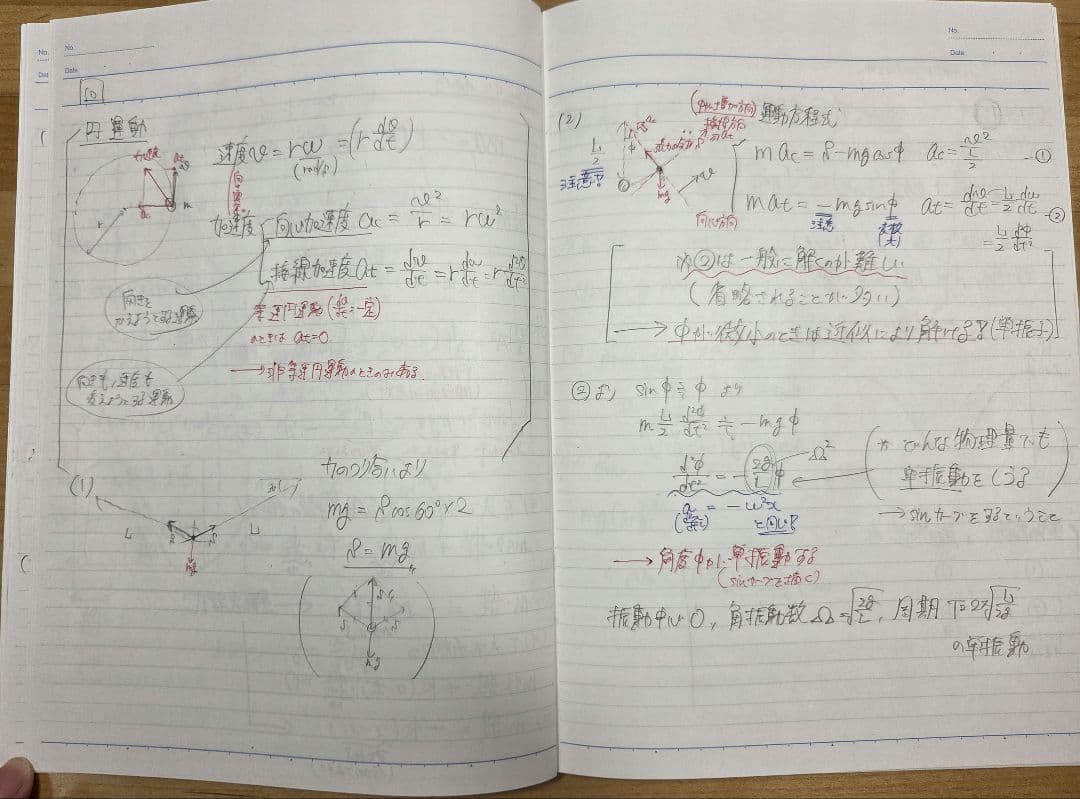 No.
Date
10
円運動
速度v = rω = (r dθ/dt)
(rad/s)
加速度
at
v
m
r
加速度
向心加速度 ac = v²/r = rω²
接線加速度 at = dv/dt = r dω/dt = r d²θ/dt²
等速円運動 (dθ/dt = 一定)
のときは at=0
→非等速円運動のときのみある
向きを
かえようとする運動
変えようとする運動
(1)
L
L
S
S
mg
力のつり合いより
mg = S cos60°×2
S = mg
S
S
mg
No.
Date
(2)
L/2
注意!
φ
mg
向心方向
(φの増加方向)
接線方向
のat
運動方程式
m ac = S - mg cosφ ac = v²/(L/2) —①
m at = -mg sinφ at = dv/dt = L/2 dω/dt —②
注意
= L/2 d²φ/dt²
※②は一般に解くのが難しい
(省略されることが多い)
→ φが微小のときは近似により解ける!(単振子)
②より sinφ≒φ より
m L/2 d²φ/dt² ≒ -mgφ
d²φ/dt² = -(2g/L)φ
Ω²
a = -ω²x
と同じ!
(※ どんな物理量でも
単振動をしうる
→sinカーブをするということ
→ 角度φが単振動する
(sinカーブを描く)
振動中心 0, 角振動数Ω=√(2g/L), 周期 T=2π√(L/2g)
の単振動